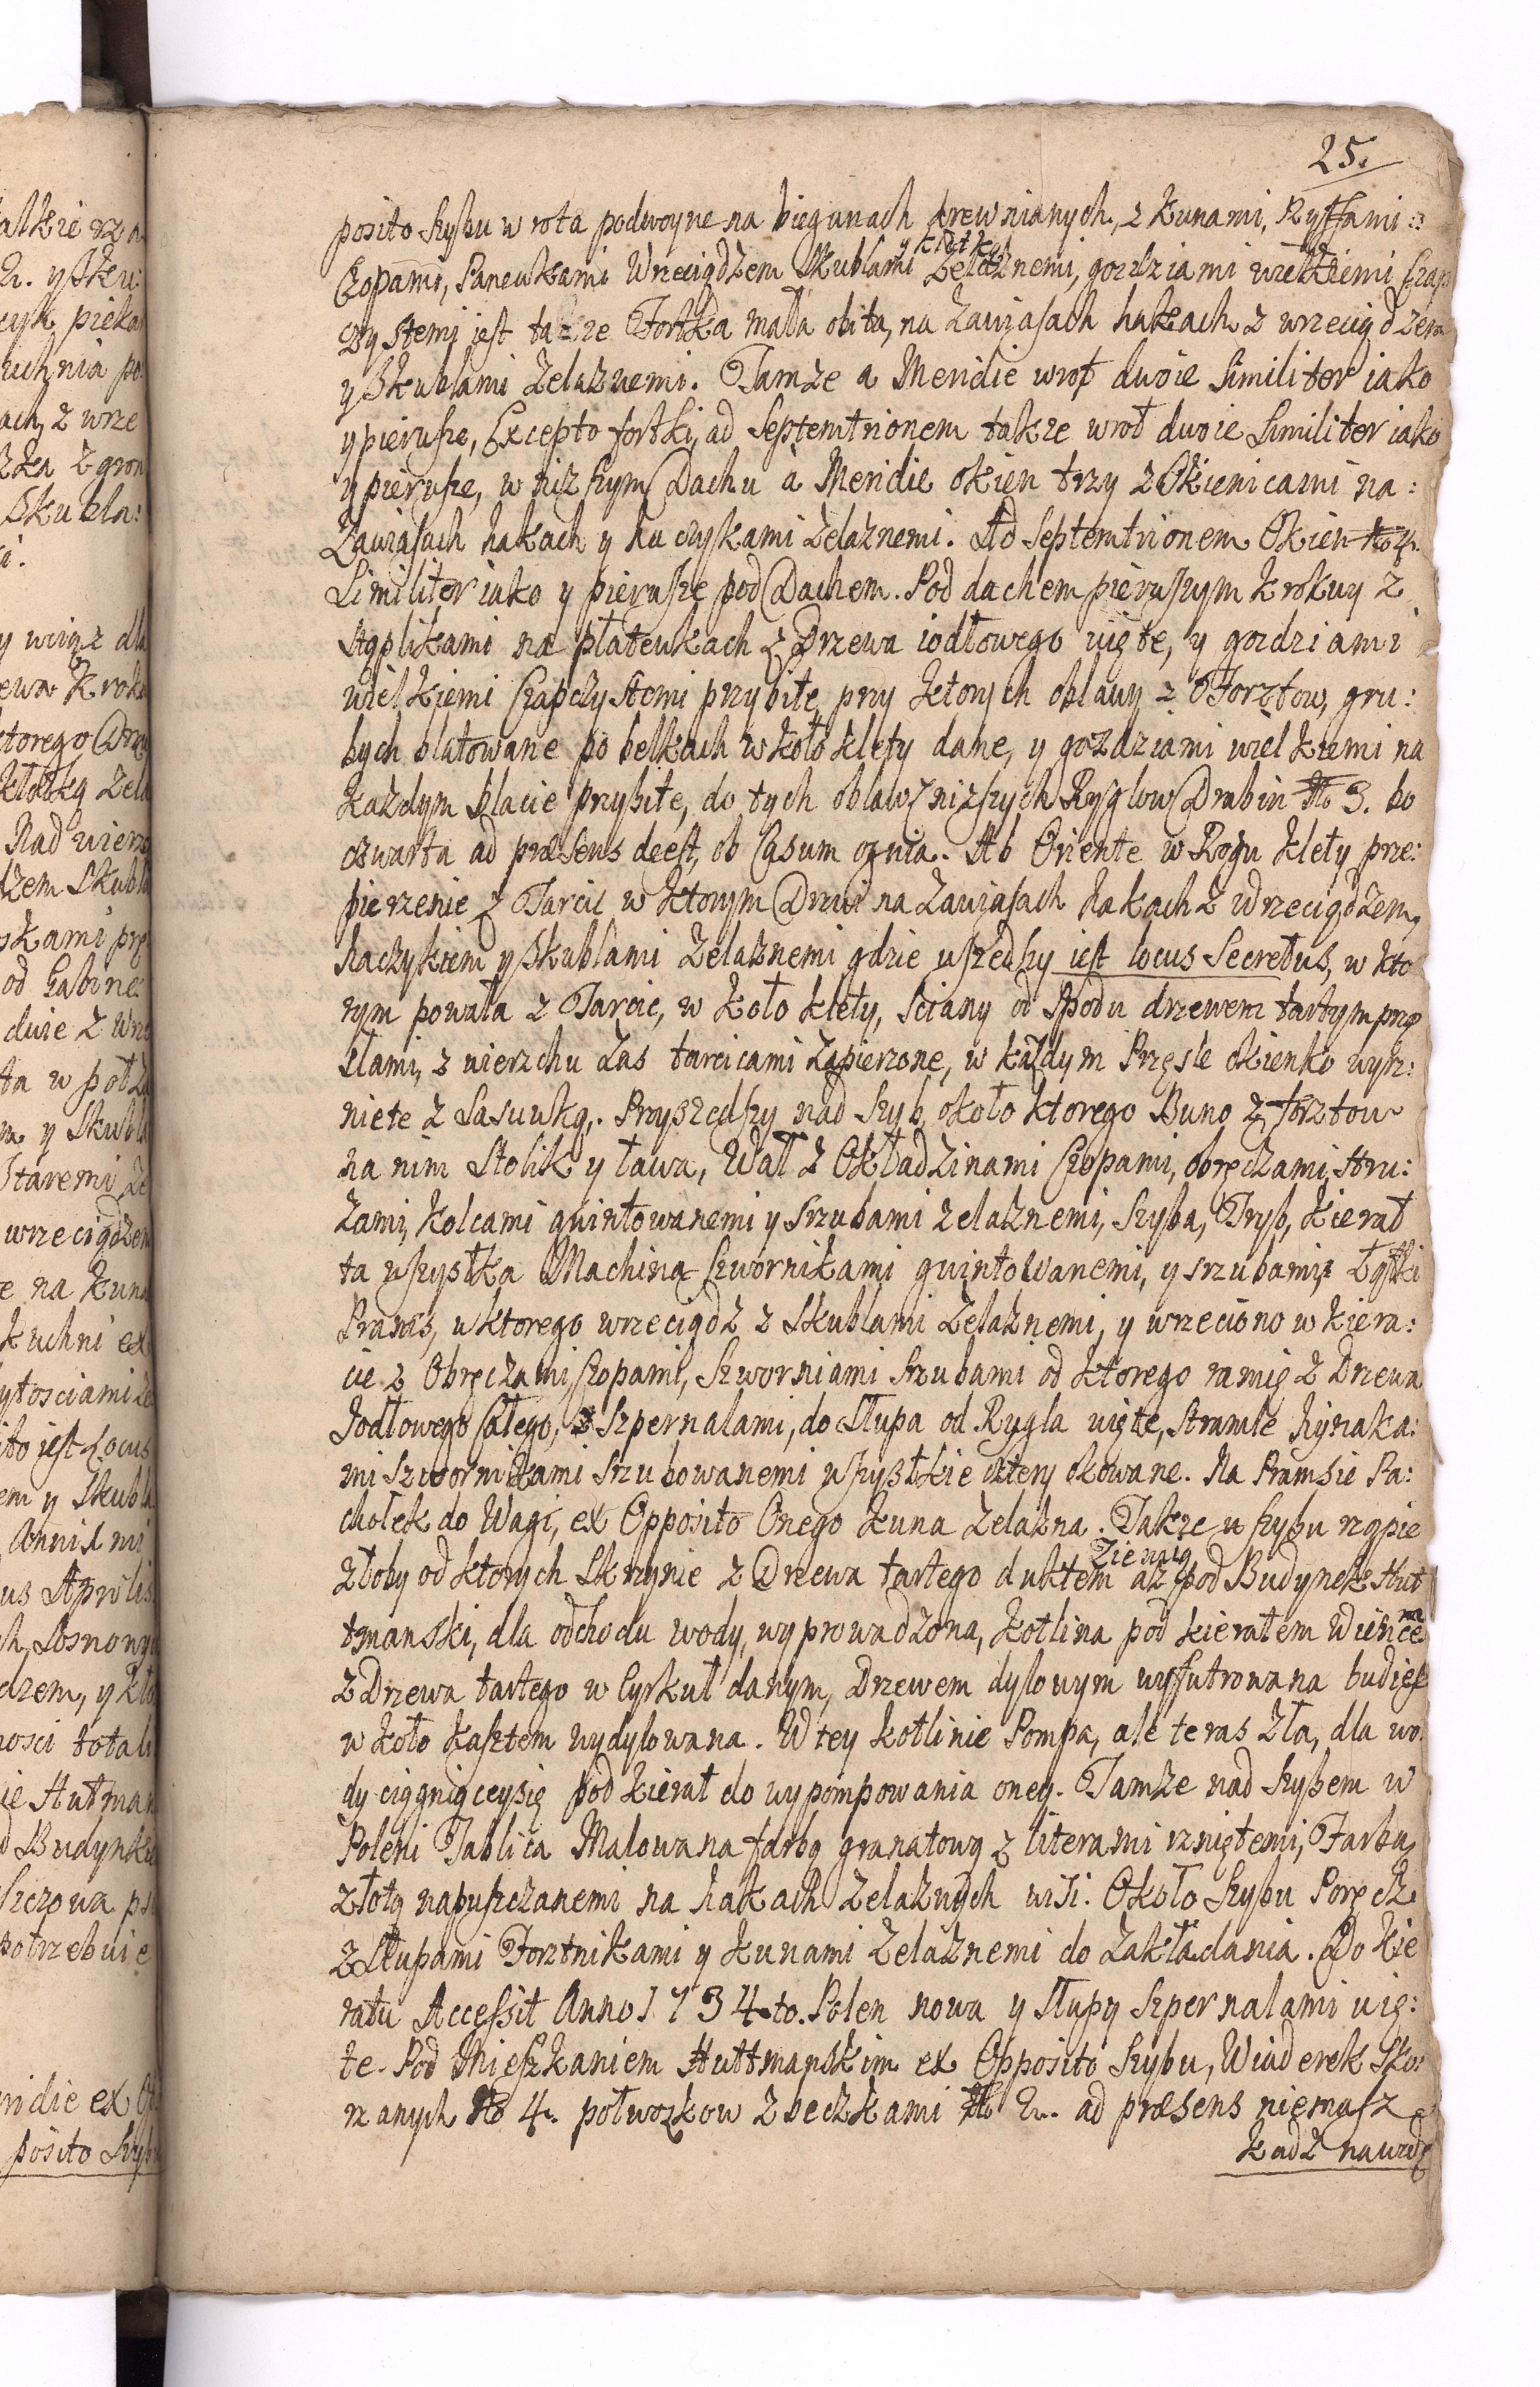 25.
posito szybu wrota podwoyne na biegunach drewnianych, z kunami, Ryffami
y kłotką
Czopami, Panewkami Wrzeciądzem Skublami Zelaznemi, gozdziami wielkiemi Czap
czystemi jest także Fortka mała obita, na zawiasach hakach z wrzeciądzem
y Skublami Zelaznemi. Tamze a Meridie wrot dwoie Similiter iako
y pierwsze, Excepto fortki, ad Septemtrionem takze wrot dwoie Similiter iako
y pierwsze, w niższym Dachu à Meridie okien trzy z Okienicami na:
Zawiasach hakach y haczykami Zelaznemi. Ad Septemtrionem Okien
Similiter iako y pierwsze pod Dachem. Pod dachem pierwszym krokwy z
Stąplikami na płatewkach z Drzewa iodłowego uięte, y gozdziami
wielkiemi Czapczystemi przybite, przy ktorych obławy z Forztow, gru:
bych blatowane po belkach w koło klety dane, y gozdziami wielkiemi na
kazdym blacie przybite, do tych obław niższych Ryglow Drabin No 3. bo
czwarta ad præsens deest, ob Casum ognia. Ab Oriente w Rogu klety prze:
pierzenie z Tarcic w ktorym Drzwi na Zawiasach hakach z Wrzeciądzem,
haczykiem y Skublami Zelaznemi gdzie wszedszy iest locus Secretus, w kto
rym powała z Tarcic, w koło klety, sciany od spodu drzewem tartym przę
słami, z wierzchu zas tarcicami zapierzone, w kazdym Pręsle okienko wyrz:
niete z Zasuwką. Przyszedszy nad szyb, około ktorego Buno z forztow
na nim Stolik y ława, Wał z Okładzinami Czopami, obręczami, Stru:
zami, kolcami gwintowanemi y srzubami zelaznemi, szyba, Tryb, kierat
ta wszystka Machina szwornikami gwintowanemi, y srzubami, z Łyski
Pramś, u ktorego wrzeciądz z Skublami Zelaznemi, y wrzeciono w kiera:
cie z Obręczami, Czopami, szworniami srzubami od ktorego ramię z Drzewa
Jodłowego Całego, z szpernalami, do słupa od Rygla uięte, stramle hynaka:
mi szwornikami srzubowanemi wszystkie cztery okowane. Na Pramsie Pa:
chołek do Wagi, ex Opposito Onego kuna Zelazna. Takze u szybu rząpie
Ziemią
złoby od ktorych Skrzynie z Drzewa tartego duktem aż pod Budynek Hut
tmanski, dla odchodu wody, wyprowadzona, kotlina pod kieratem Wience
z Drzewa tartego w Cyrkuł danym, Drzewem dylowym wyfutrowana budież
w koło kasztem wydylowana. W tey kotlinie Pompa, ale teras zła, dla wo:
dy ciągniąceysię pod kierat do wypompowania oney. Tamze nad szybem w
Poleni Tablica Malowana farbą granatową z literami rzniętemi, Farbą
złotą napuszczanemi na hakach zelaznych wisi. Około szybu Poręcz
z słupami Forztnikami y kunami Zelaznemi do zakładania. Do kie
ratu Accessit Anno 1734to. Polen nowa y słupy szpernalami uię:
te. Pod Mieszkaniem Huttmanskim ex Opposito szybu, Wiaderek sko:
rzanych No 4. połwozkow z beczkami No 2. ad præsens niemasz
kadź na wodę